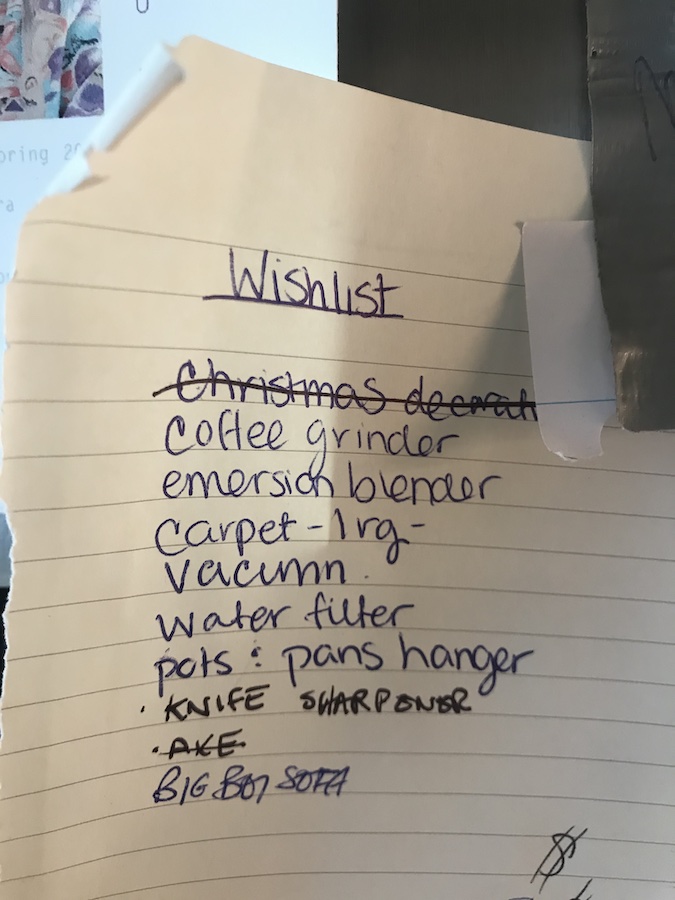 Wishlist
Christmas decorati
Coffee grinder
emersion blender
carpet - lrg -
vacumn
water filter
pots : pans hanger
· KNIFE SHARPENER
· AXE
BIG BOY SOFA
$